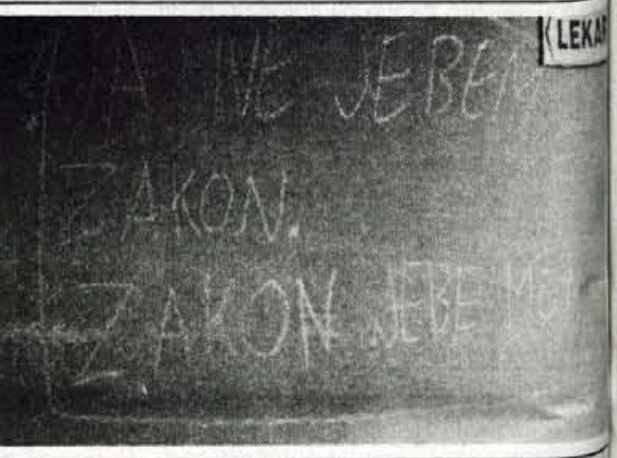 LEKAR
JA NE JEBEM
ZAKON.
ZAKON JEBE MENE